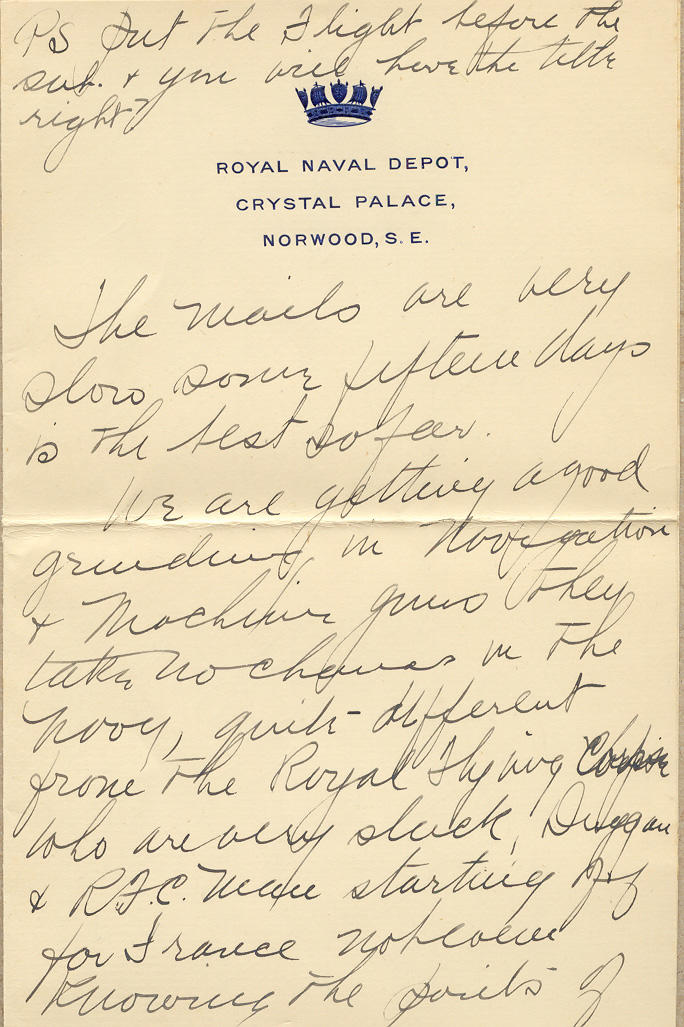 PS Put the Flight before the
sub. & you will have the title
right?
ROYAL NAVAL DEPOT,
CRYSTAL PALACE,
NORWOOD, S.E.
The mails are very
slow some fifteen days
is the best so far.
We are getting a good
grinding in Navigation
& Machine guns they
take no chances in the
Navy, quite different
from the Royal Flying
who are very slack,
& R.F.C. man starting off
for France not even
Knowing the points of